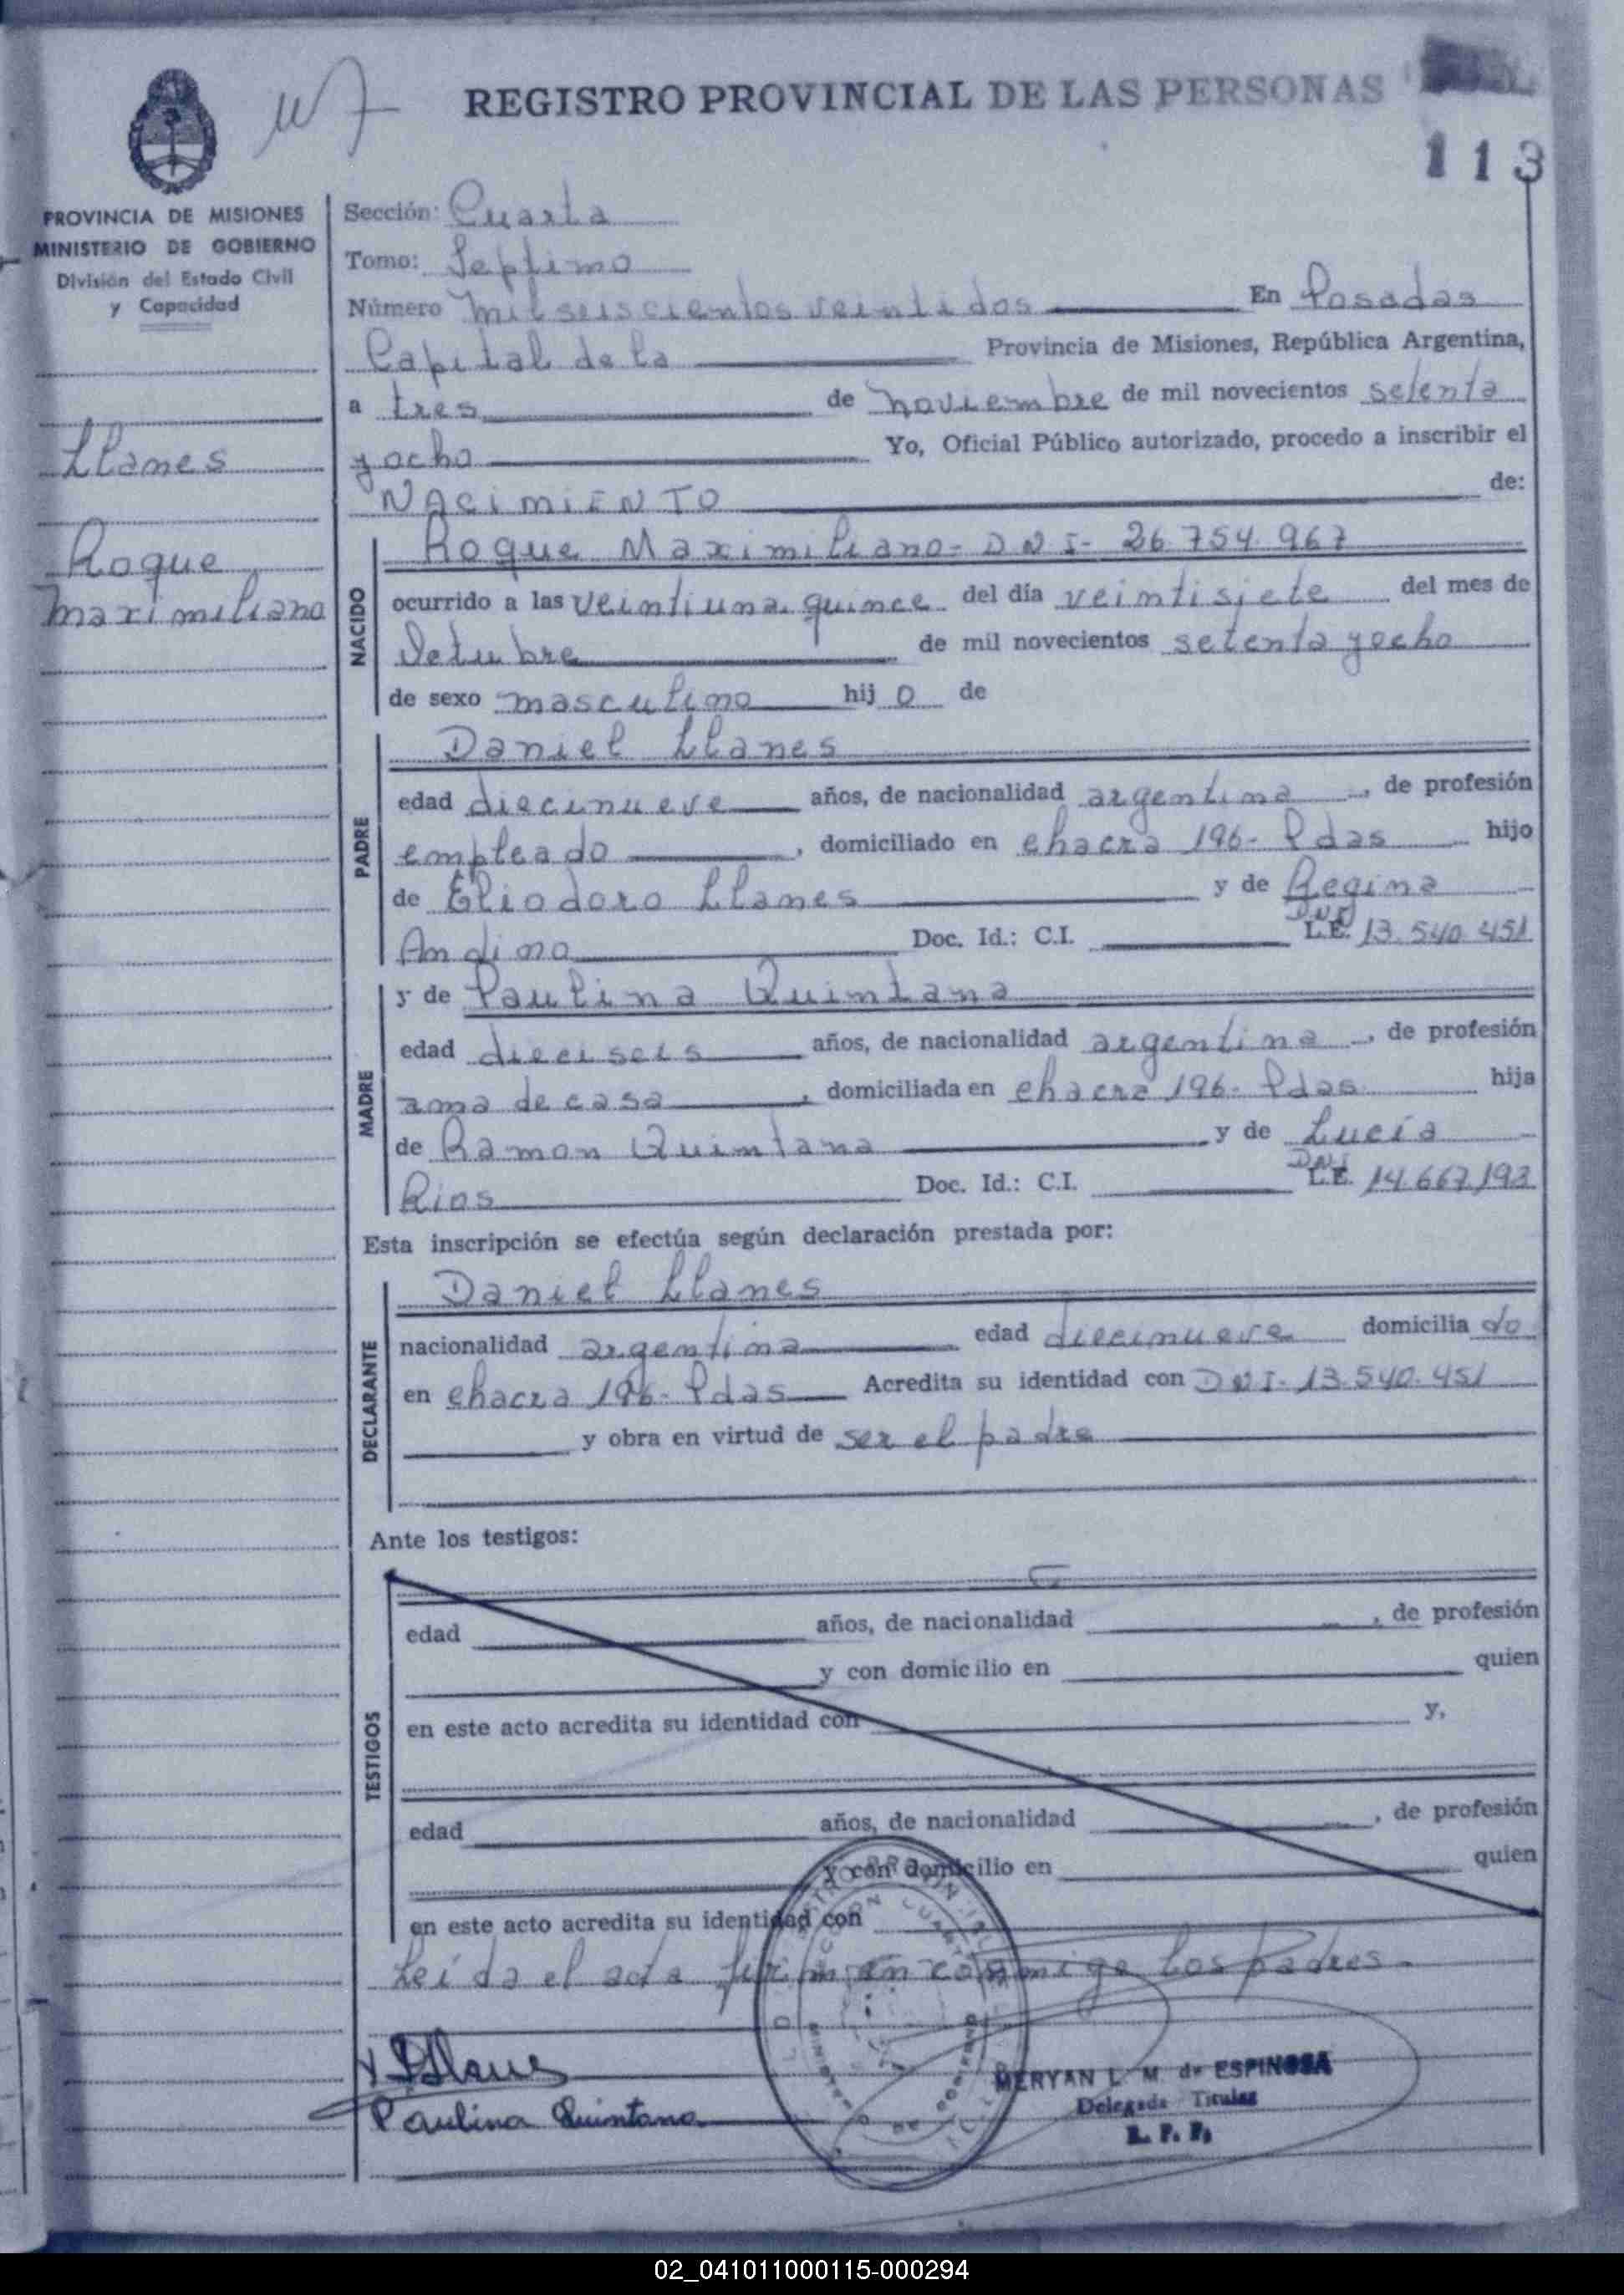 REGISTRO PROVINCIAL DE LAS PERSONAS
113
PROVINCIA DE MISIONES
MINISTERIO DE GOBIERNO
División del Estado Civil
y Capacidad
Llanes
Roque
Maximiliano
Sección: Cuarta
Tomo: Septimo
Número mil seiscientos veintidos En Posadas
Capital de la Provincia de Misiones, República Argentina,
a tres de noviembre de mil novecientos setenta
y ocho Yo, Oficial Público autorizado, procedo a inscribir el
NACIMIENTO de:
NACIDO
Roque Maximiliano - DNI - 26.754.967
ocurrido a las veintiuna quince del día veintisiete del mes de
Octubre de mil novecientos setenta y ocho
de sexo masculino hij o de
PADRE
Daniel Llanes
edad diecinueve años, de nacionalidad argentina, de profesión
empleado, domiciliado en chacra 196 - Pdas hijo
de Eliodoro Llanes y de Regina
Andino Doc. Id.: C.I. L.E. DNI 13.540.451
MADRE
y de Paulina Quintana
edad dieciseis años, de nacionalidad argentina, de profesión
ama de casa, domiciliada en chacra 196 - Pdas hija
de Ramon Quintana y de Lucía
Rios Doc. Id.: C.I. L.E. DNI 14.667.193
Esta inscripción se efectúa según declaración prestada por:
DECLARANTE
Daniel Llanes
nacionalidad argentina edad diecinueve domicilia do
en chacra 196 - Pdas Acredita su identidad con DNI - 13.540.451
y obra en virtud de ser el padre
Ante los testigos:
TESTIGOS
edad años, de nacionalidad , de profesión
y con domicilio en quien
en este acto acredita su identidad con y,
edad años, de nacionalidad , de profesión
y con domicilio en quien
en este acto acredita su identidad con
Leída el acta firman conmigo los padres.
Paulina Quintana
MERYAN L. M. de ESPINOSA
Delegada Titular
R. P. P.
02_041011000115-000294